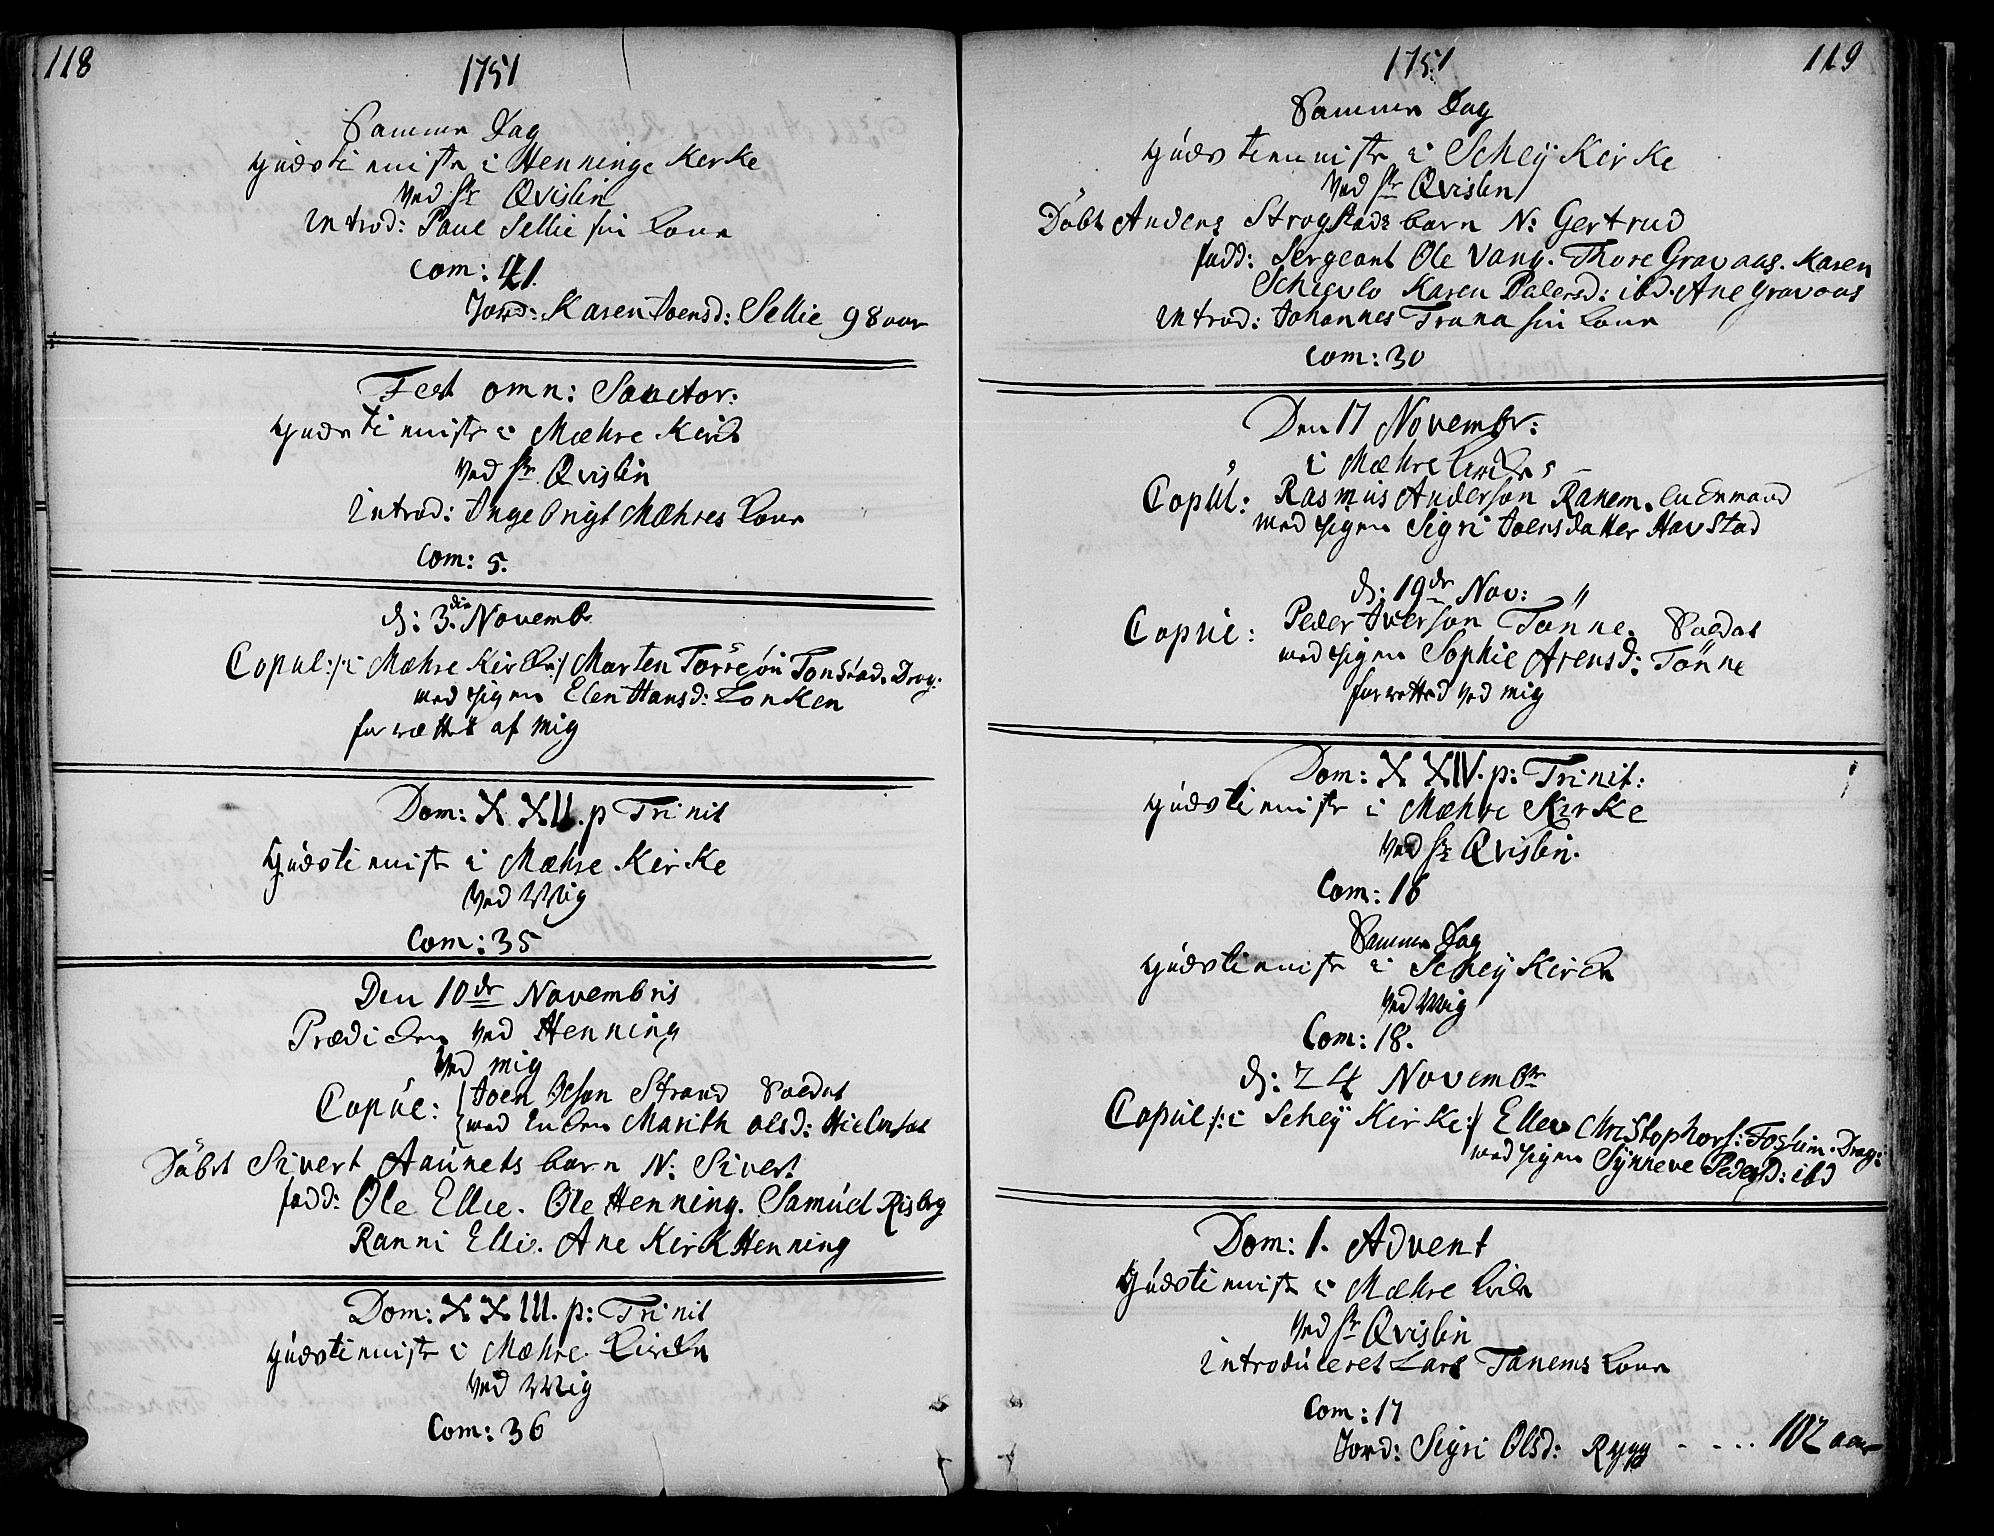 118
1751
Samme Dag
Gudstieniste i Henninge Kirke
ved Hr Qvislin
Introd: Paul Sellie sin Kone
Com: 41.
Jord: Karen Joensd: Sellie 98 aar
Fest omn: Sanctor:
Gudstieniste i Mæhre Kirke
ved Hr. Qvislin
Introd: Ingebrigt Mæhres Kone
Com: 5.
d: 3die Novemb
Copul: /: i Mæhre Kirke :/ Marten Torresøn Tonstad. Drag:
med pigen Elen Hansd: Lonken
forrættet af mig
Dom: XXII. p Trinit
Gudstieniste i Mæhre Kirke
ved Mig
Com: 35
Den 10de Novembris
Prædiken ved Henning
ved mig
Copul: Joen Olsøn Strand Soldat
med Enken Marith Olsd: Hielmset
Døbt Sivert Aunets barn N: Sivert
fadd: Ole Ellie. Ole Henning. Samuel Risberg
Ranni Elli. Ane Kirk Henning
Dom: XXIII. p: Trinit
Gudstieniste i Mæhre Kirke
ved Mig
Com: 36
119
1751
Samme Dag
Gudstieniste i Schey Kirke
ved Hr Qvislin
Døbt Anders Strogstads barn N: Gertrud
fadd: Sergeant Ole Vang. Thore Gravaas. Karen
Schievlo Karen Palersd: ibd. Ane Gravaas
Introd: Johannes Trana sin Kone
Com: 30
Den 17 Novembr:
i Mæhre Kirke
Copul: Rasmus Andersøn Ranem. en Enmand
med pigen Sigri Joensdatter Havstad
d: 19de Nov:
Copul: Peder Iversøn Tønne. Soldat
med pigen Sophie Arensd: Tønne
forrætted ved mig
Dom: XXIV. p: Trinit:
Gudstieniste i Mæhre Kirke
ved Hr Qvislin.
Com: 16
Samme Dag
Gudstieniste i Schey Kirke
ved Mig
Com: 18.
d: 24 Novembr
Copul /: i Schey Kirke :/ Ellev Christophers: Fosheim. Drag:
med pigen Synneve Pedersd: ibd
Dom: 1. Advent
Gudstieniste i Mæhre Kirke
ved Hr Qvislin
Introduceret Lars Tanems Kone
Com: 17
Jord: Sigri Olsd: Rygg - - ... 102 aar